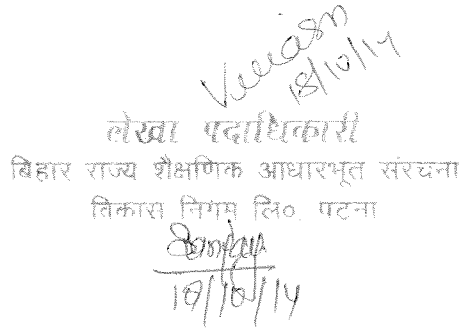 18/10/14
लेखा पदाधिकारी
बिहार राज्य शैक्षणिक आधारभूत संरचना
विकास निगम लि०. पटना
18/10/14